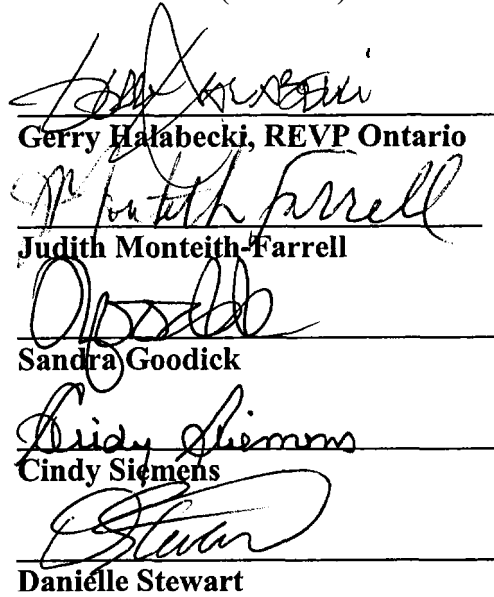 Gerry Halabecki
Gerry Halabecki, REVP Ontario
Monteith Farrell
Judith Monteith-Farrell
Sandra Goodick
Cindy Siemens
Cindy Siemens
D Stewart
Danielle Stewart